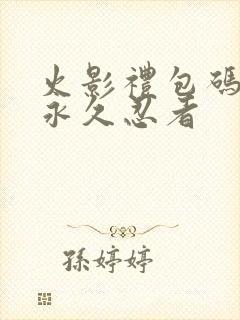 火影禮包碼
永久忍者
孫婷婷